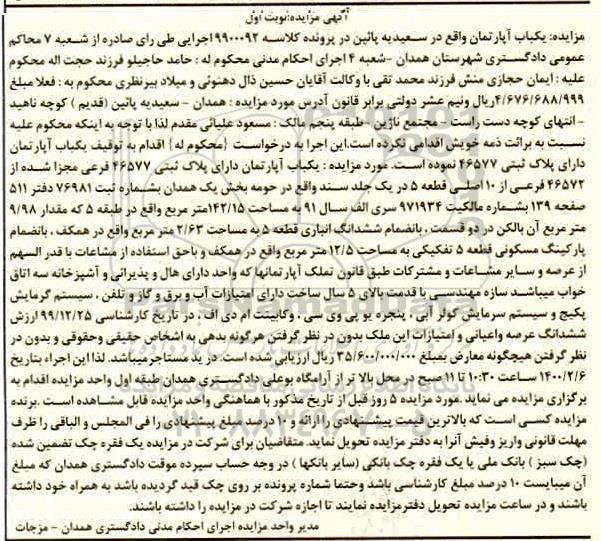 آگهی مزایده:نوبت اول
مزایده: یکباب آپارتمان واقع در سعیدیه پائین در پرونده کلاسه ۹۹۰۰۰۹۲ اجرایی طی رای صادره از شعبه ۷ محاکم
عمومی دادگستری شهرستان همدان -شعبه ۴ اجرای احکام مدنی محکوم له : حامد حاجیلو فرزند حجت اله محکوم
علیه : ایمان حجازی منش فرزند محمد تقی با وکالت آقایان حسین ذال دهنوئی و میلاد بیرنظری محکوم به : فعلا مبلغ
۴/۶۷۶/۶۸۸/۹۹۹ریال ونیم عشر دولتی برابر قانون آدرس مورد مزایده : همدان - سعیدیه پائین (قدیم ) کوچه ناهید
- انتهای کوچه دست راست - مجتمع نازنین -طبقه پنجم مالک : مسعود علیائی مقدم لذا با توجه به اینکه محکوم علیه
نسبت به برائت ذمه خویش اقدامی نکرده است.این اجرا به درخواست (محکوم له) اقدام به توقیف یکباب آپارتمان
دارای پلاک ثبتی ۴۶۵۷۷ نموده است. مورد مزایده : یکباب آپارتمان دارای پلاک ثبتی ۴۶۵۷۷ فرعی مجزا شده از
۴۶۵۷۲ فرعی از ۱۰ اصلی قطعه ۵ در یک جلد سند واقع در حومه بخش یک همدان بشماره ثبت ۷۶۹۸۱ دفتر ۵۱۱
صفحه ۱۳۹ بشماره مالکیت ۹۷۱۹۳۴ سری الف سال ۹۱ به مساحت ۱۴۲/۱۵متر مربع واقع در طبقه ۵ که مقدار ۹/۹۸
متر مربع آن بالکن در دو قسمت ، بانضمام ششدانگ انباری قطعه ۵ به مساحت ۲/۶۳ متر مربع واقع در همکف ، بانضمام
پارکینگ مسکونی قطعه ۵ تفکیکی به مساحت ۱۲/۵ متر مربع واقع در همکف و باحق استفاده از مشاعات با قدر السهم
از عرصه و سایر مشاعات و مشترکات طبق قانون تملک آپارتمانها که واحد دارای هال و پذیرائی و آشپزخانه سه اتاق
خواب میباشد سازه مهندسی با قدمت بالای ۵ سال ساخت دارای امتیازات آب و برق و گاز و تلفن ، سیستم گرمایش
پکیج و سیستم سرمایش کولر آبی ، پنجره یو پی وی سی ، وکابینت ام دی اف . در تاریخ کارشناسی ۹۹/۱۲/۲۵ ارزش
ششدانگ عرصه واعیانی و امتیازات این ملک بدون در نظر گرفتن هرگونه بدهی به اشخاص حقیقی وحقوقی و بدون در
نظر گرفتن هیچگونه معارض بمبلغ ۳۵/۶۰۰/۰۰۰/۰۰۰ ریال ارزیابی شده است. در ید مستاجرمیباشد. لذا این اجراء بتاریخ
۱۴۰۰/۲/۶ ساعت ۱۰:۳۰ تا ۱۱ صبح در محل بالا تر از آرامگاه بوعلی دادگستری همدان طبقه اول واحد مزایده اقدام به
برگزاری مزایده می نماید .مورد مزایده ۵ روز قبل از تاریخ مذکور با هماهنگی واحد مزایده قابل مشاهده است .برنده
مزایده کسی است که بالاترین قیمت پیشنهادی را ارائه و ۱۰ درصد مبلغ پیشنهادی را فی المجلس و الباقی را ظرف
مهلت قانونی واریز وفیش آنرا به دفتر مزایده تحویل نماید. متقاضیان برای شرکت در مزایده یک فقره چک تضمین شده
(چک سبز ) بانک ملی یا یک فقره چک بانکی (سایر بانکها ) در وجه حساب سپرده موقت دادگستری همدان که مبلغ
آن میبایست ۱۰ درصد مبلغ کارشناسی باشد وحتما شماره پرونده بر روی چک قید گردیده باشد به همراه خود داشته
باشند و در ساعت مزایده تحویل دفترمزایده نمایند تا اجازه شرکت در مزایده را داشته باشند.
مدیر واحد مزایده اجرای احکام مدنی دادگستری همدان - مزجات